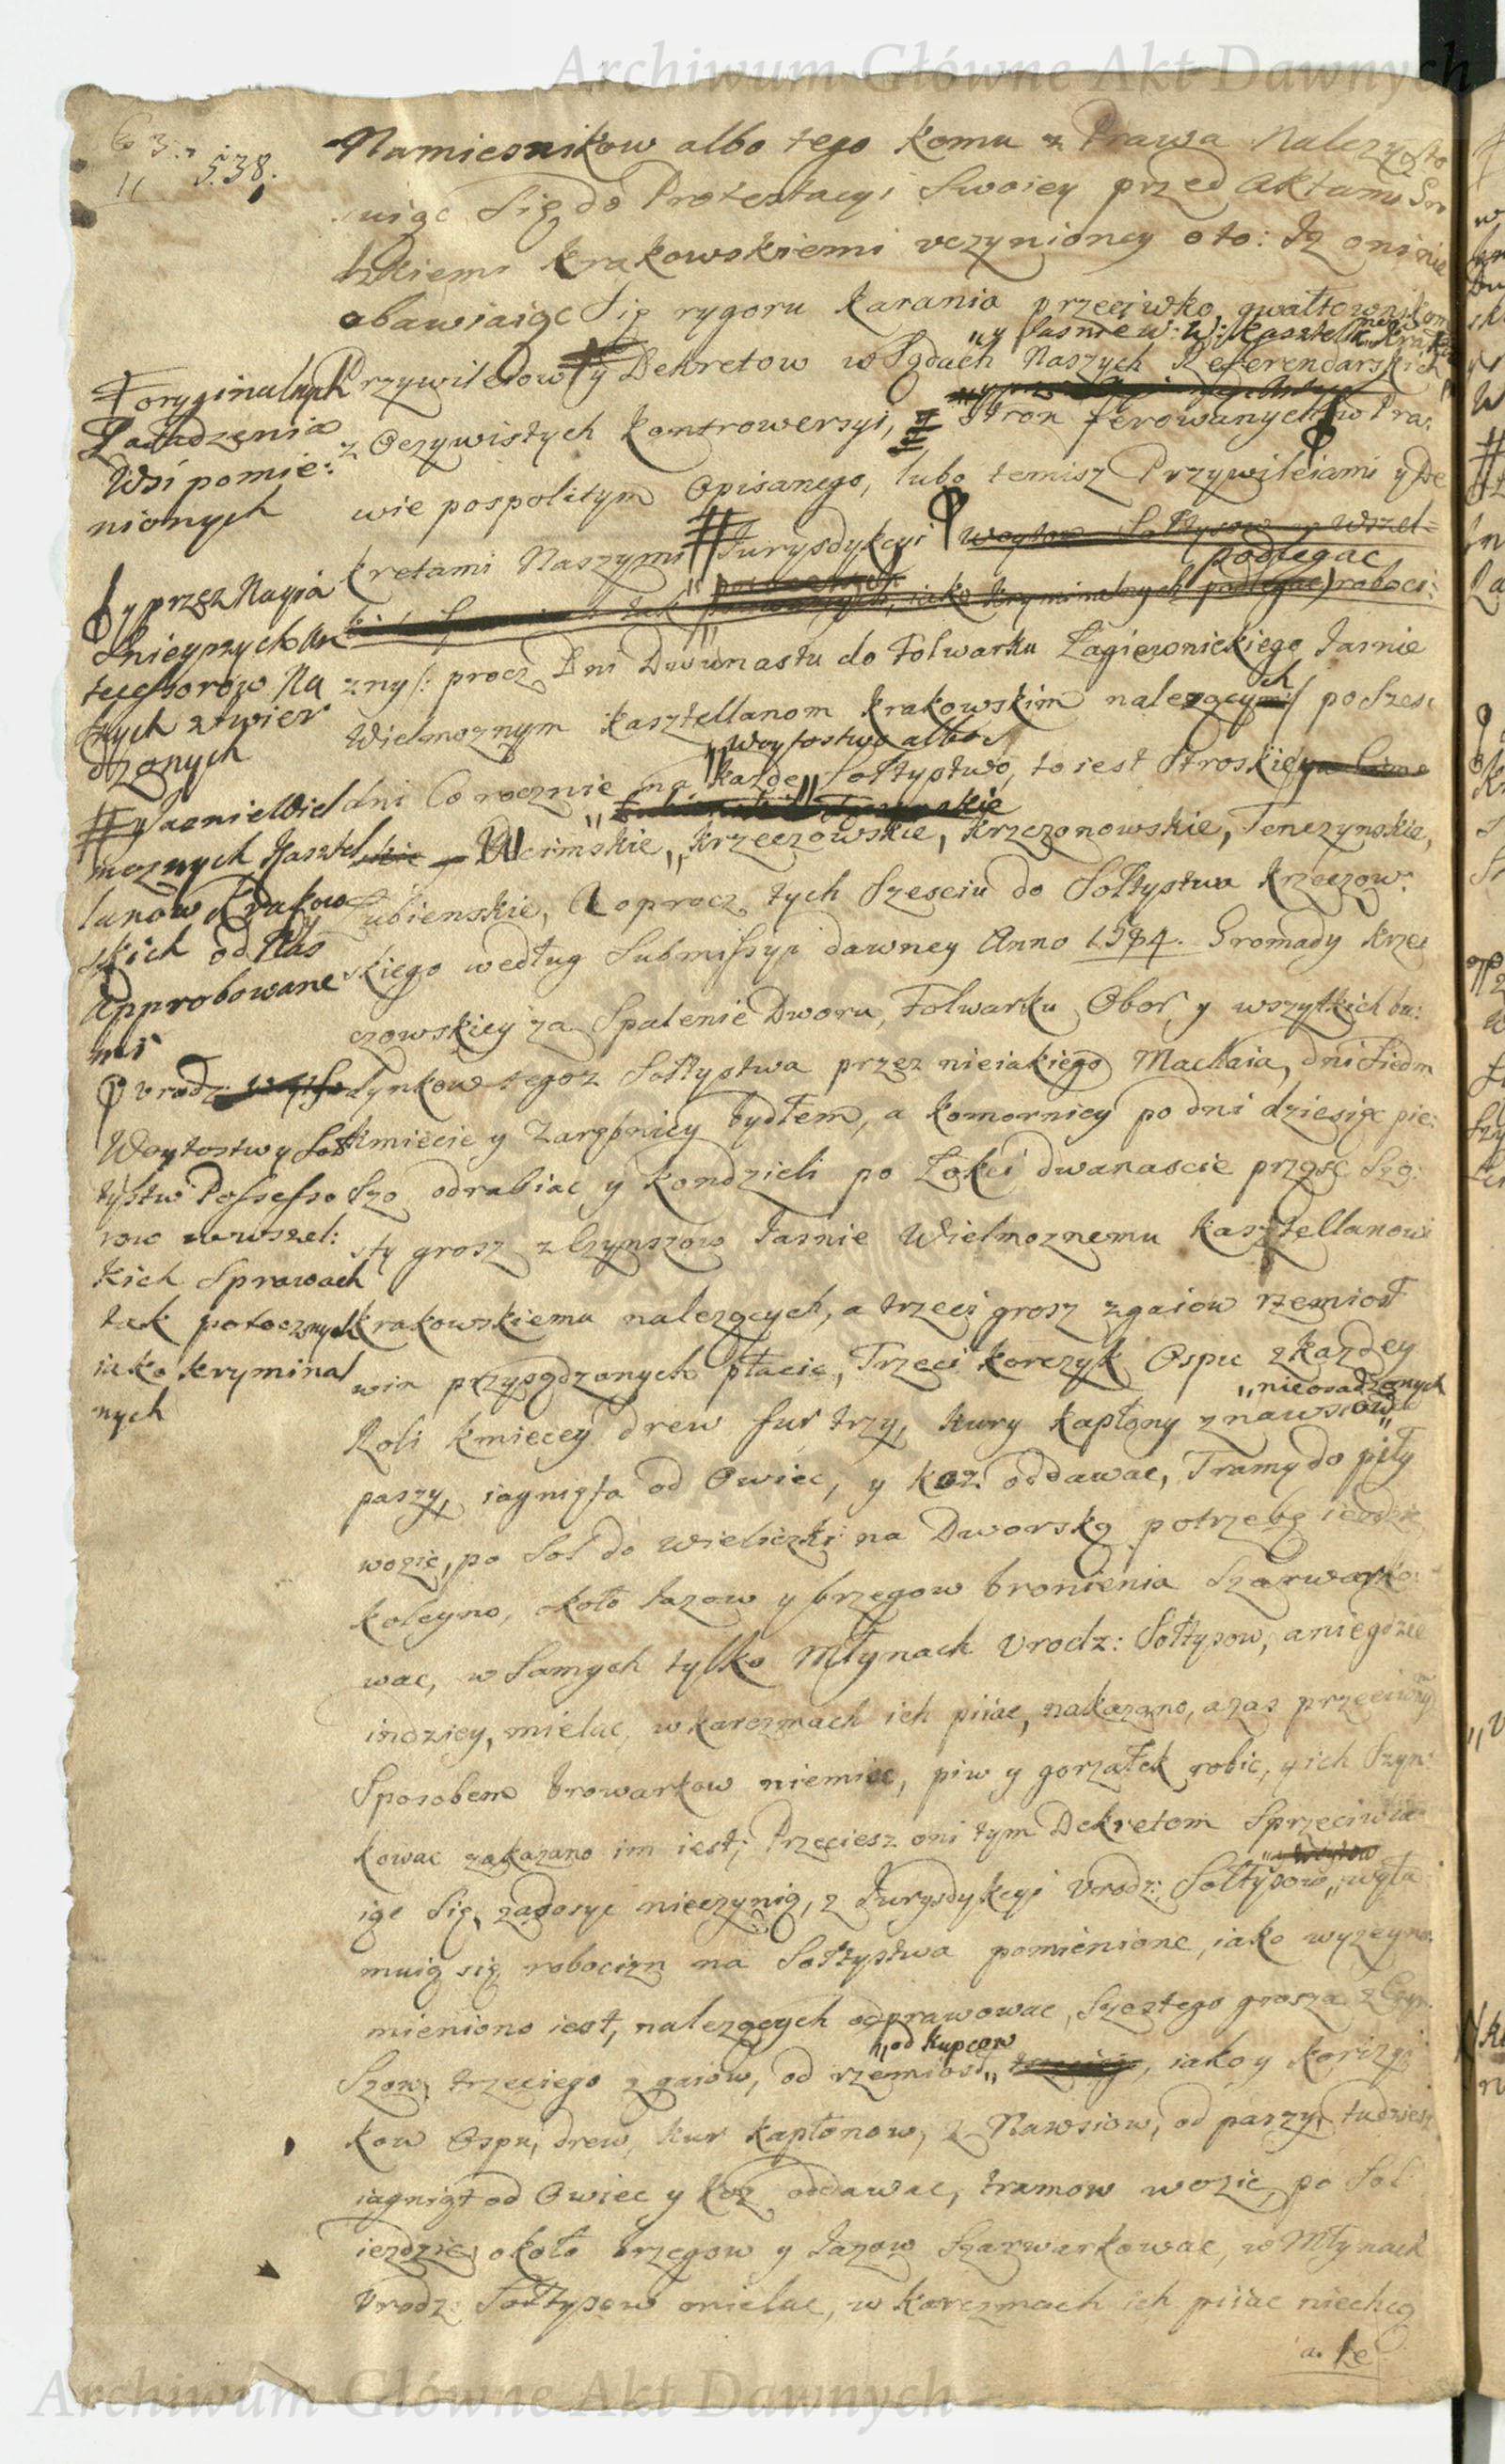 Archiwum Główne Akt Dawnych
538.
Namiesnikow albo tego komu z Prawa Nalezy, sto
suiąc Się do Protestacyi Swoiey przed Aktami Gro
dzkiemi krakowskiemi vczynioney oto: Iz oni nie
obawiaiąc Się rygoru karania przeciwko gwałtownikom
"y Jasnie W: W: Kasztell: Krak
Przywileiow # y Dekretow w Sądach Naszych Referendarskich
z Oczywistych kontrowersyi, Stron ferowanych w Pra:
wie pospolitym Opisanego, lubo temisz Przywileiami y De
kretami Naszymi # Jurysdykcyi Woytow Sołtysow w wszel=
podlegac
tak iako kryminalnych podlegac, roboci:
zny /: procz Dni Dwunastu do Folwarku Łagiewnickiego Jasnie
Wielmoznym Kasztellanom krakowskim nalezących / po Szesc
"Woytostwo albo
dni Corocznie na każde Sołtystwo, to iest Stroskie
Ucimskie, krzeczowskie, krzczonowskie, Tenczynskie,
Łubienskie, A oprocz tych Szesciu do Sołtystwa krzeczow:
skiego według Submissyi dawney Anno 1584. Gromady krze
czowskiey za Spalenie Dworu, Folwarku Obor, y wszytkich bu:
dynkow tegoz Sołtystwa przez nieiakiego Macłaia, dni Siedm
kmiecie y Zarębnicy bydłem, a komornicy po dni dziesięc pie:
Szo odrabiac y kondzieli po Łokci dwanascie prząsc Szo:
sty grosz z Czynszow Jasnie Wielmoznemu kasztellanowi
krakowskiemu nalezących, a trzeci grosz z gaiow rzemiosł
win przysądzonych płacic, Trzeci korczyk Ospu z kazdey
"nieosadzonych
Roli kmiecey drew fur trzy, kury kapłony z nawsiow
paszy, iagnięta od Owiec, y koz oddawac, Tramy do piły
wozic, po Sol do Wieliczki na Dworską potrzebę iezdzic
koleyno, około Jazow y brzegow bronienia Szarwarko:
wac, w Samych tylko Młynach Vrodz: Sołtysow, a niegdzie
indziey, mielac, w karczmach ich piiac, nakazano, a zas przeciwnym
Sposobem browarkow niemiec, piw y gorzałek robic, y ich Szyn:
kowac zakazano im iest; Przeciesz oni tym Dekretom Sprzeciwia
iąc Się, zadosyc nieczynią, z Jurysdykcyi Vrodz: Sołtysow wyła
muią się, robocizn na Sołtystwa pomienione, iako wyzey na:
mieniono iest, nalezących odprawowac, Szostego grosza z Czyn:
"od kupcow
Szow, trzeciego z gaiow, od rzemiosł, iako y korczy
kow Ospu, drew, kur kapłonow, z Nawsiow, od paszy, tudziesz
iagniąt od Owiec y koz oddawac, tramow wozic, po Sol
iezdzic, około brzegow y Jazow Szarwarkowac, w Młynach
Vrodz: Sołtysow mielac, w karczmach ich piiac niechcą
a. Ze
# oryginalnych
Zasadzenia
Wsi pomie:
nionych
y przez Nayia
snieyszych An
tecessorow Na
szych ztwier
dzonych
# y Jasnie Wiel
moznych Kasztel
lanow Krakow
skich od Nas
Approbowane
mi
Vrodz:
Woytostw y Soł
tystw Possesso
row w wszel:
kich Sprawach
tak potocznych
iako kryminal
nych
Archiwum Główne Akt Dawnych